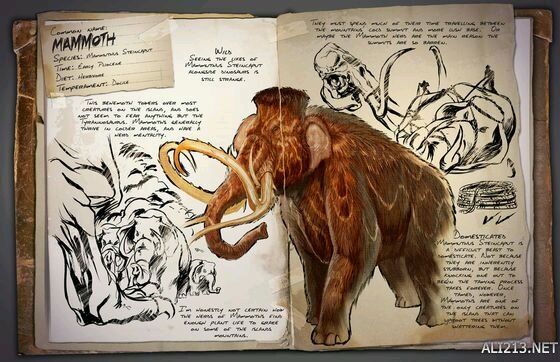 Common Name:
Mammoth
Species: Mammuthus Steincaput
Time: Early Pliocene
Diet: Herbivore
Temperament: Docile
Wild
Seeing the likes of
Mammuthus Steincaput
alongside dinosaurs is
still strange.
This behemoth towers over most
creatures on the island, and does
not seem to fear anything but the
Tyrannosaurus. Mammoths generally
thrive in colder areas, and have a
herd mentality.
I'm honestly not certain how
the herds of Mammoths find
enough plant life to graze
on some of the islands
mountains.
They must spend much of their time travelling between
the mountains cold summit and more lush base. Or
maybe the Mammoth herds are the main reason the
summits are so barren.
Domesticated
Mammuthus Steincaput is
a difficult beast to
domesticate. Not because
they are inherently
stubborn, but because
knocking one out to
begin the taming process
takes forever. Once
tamed, however,
Mammoths are one of
the only creatures on
the island that can
uproot trees without
shattering them.
ALI213.NET